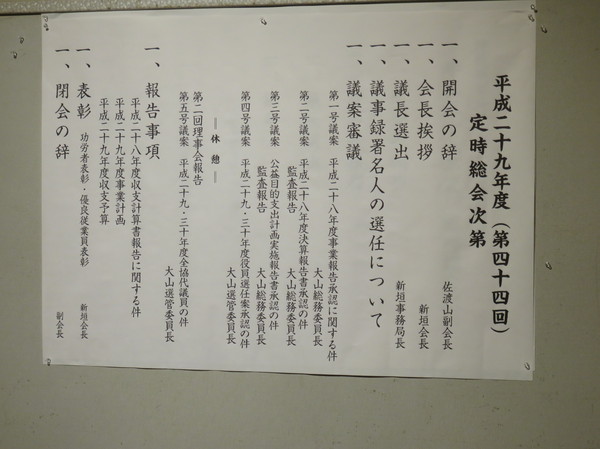 平成二十九年度(第四十四回)
定時総会次第
一、開会の辞 佐渡山副会長
一、会長挨拶 新垣会長
一、議長選出 新垣事務局長
一、議事録署名人の選任について
一、議案審議
第一号議案 平成二十八年度事業報告承認に関する件
大山総務委員長
第二号議案 平成二十八年度決算報告書承認の件
監査報告 大山総務委員長
第三号議案 公益目的支出計画実施報告書承認の件
監査報告 大山総務委員長
第四号議案 平成二十九・三十年度役員選任案承認の件
大山選管委員長
＝休憩＝
第二回理事会報告
第五号議案 平成二十九・三十年度全協代議員の件
大山選管委員長
一、報告事項
平成二十八年度収支計算書報告に関する件
平成二十九年度事業計画
平成二十九年度収支予算
一、表彰 功労者表彰・優良従業員表彰 新垣会長
一、閉会の辞 副会長